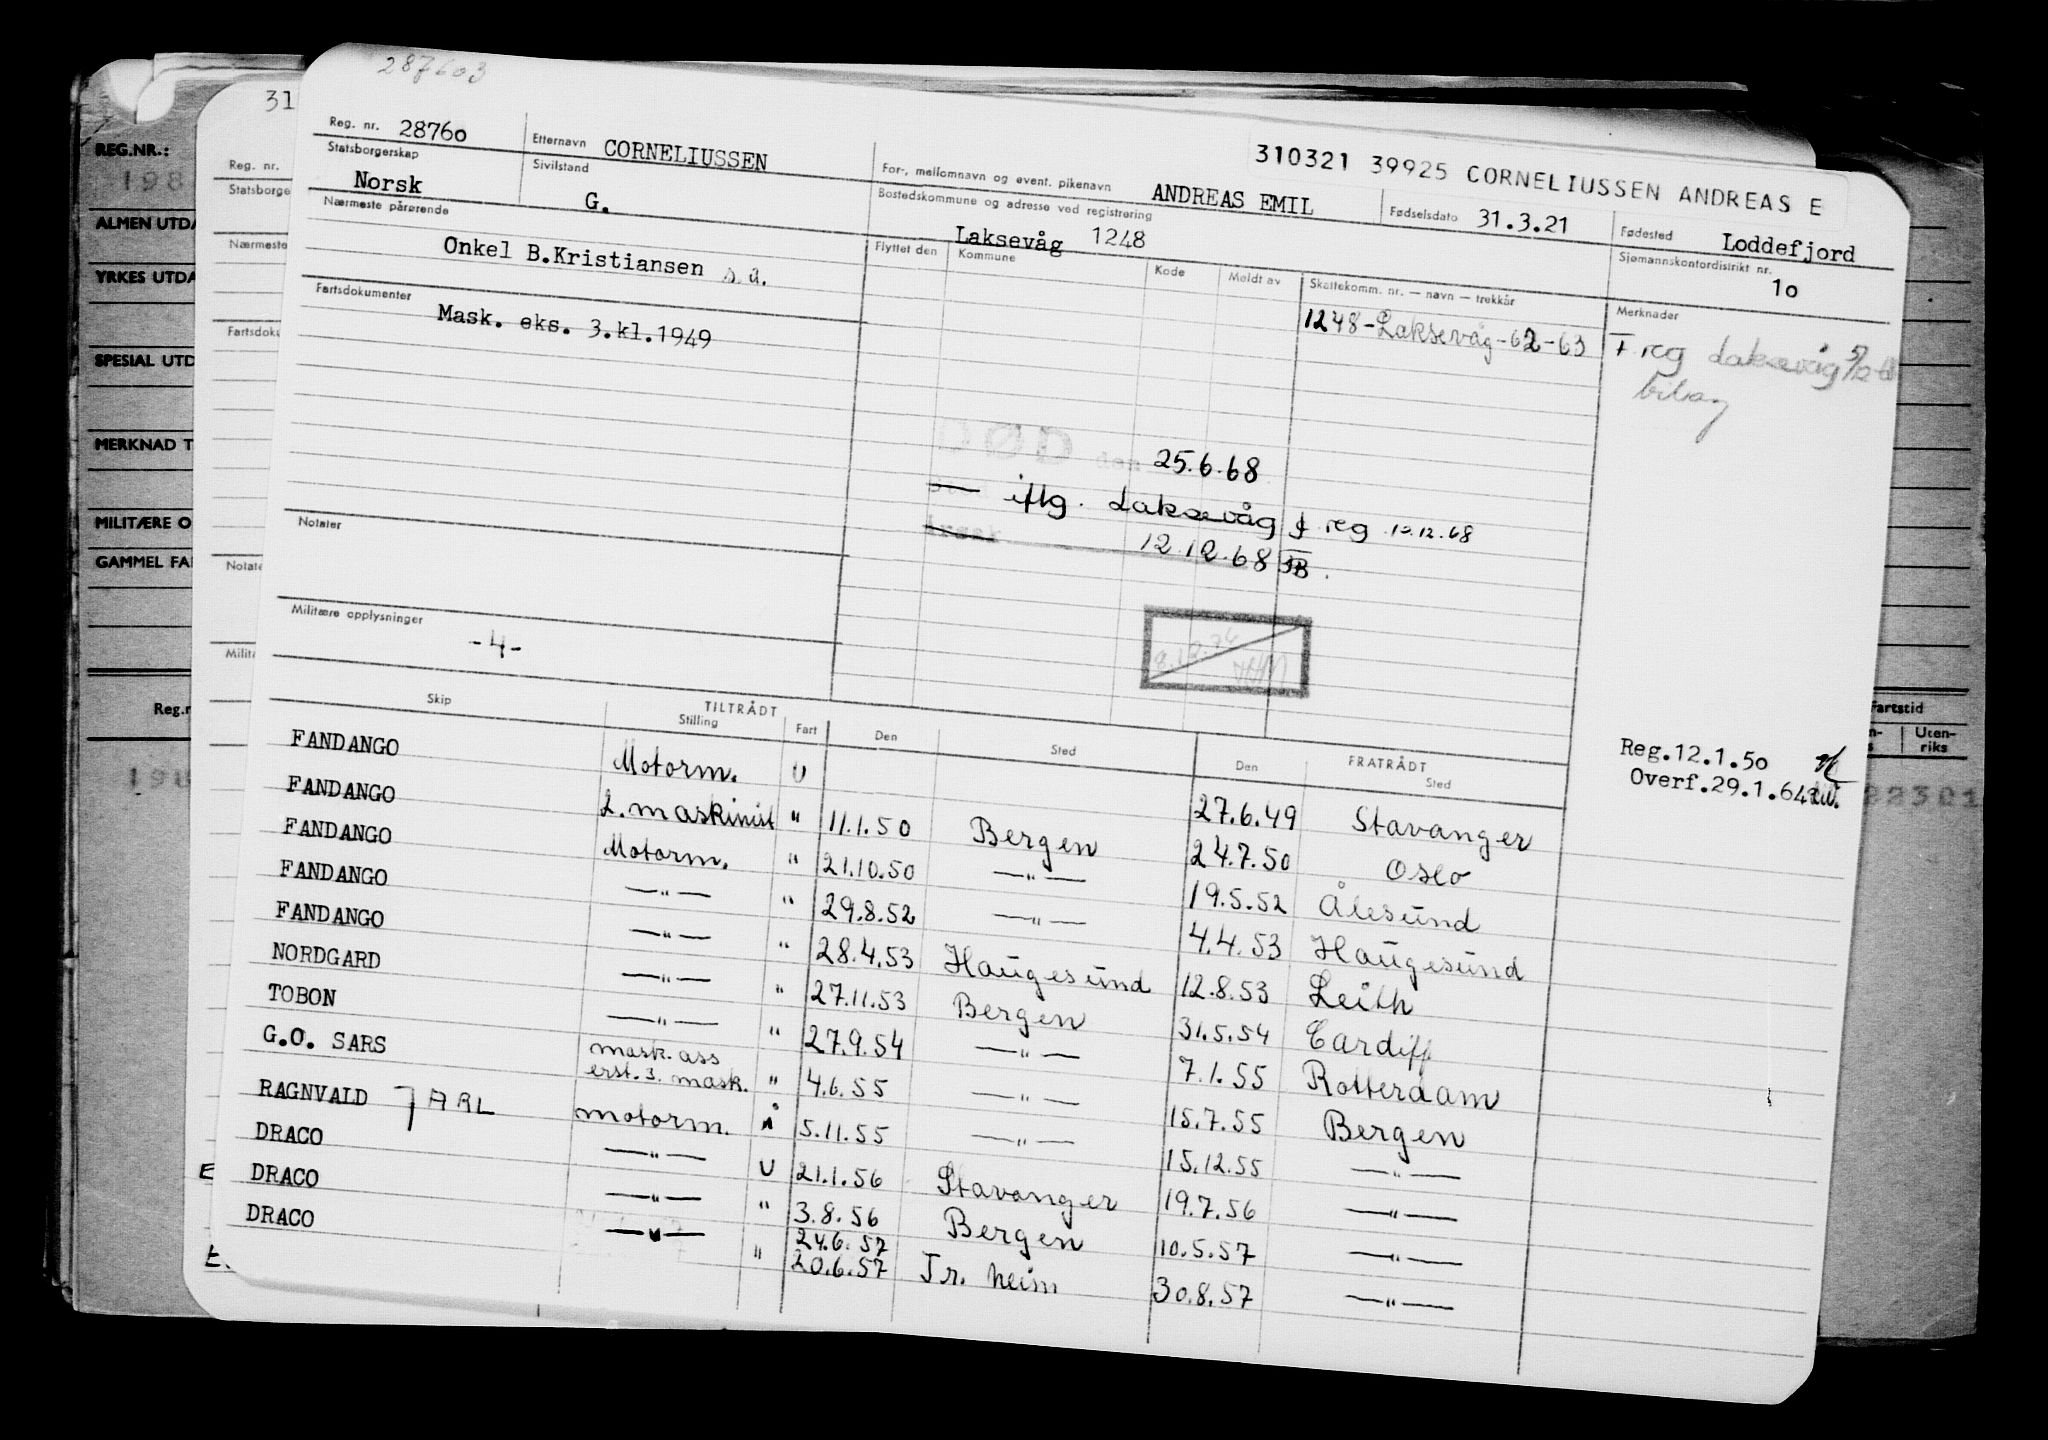 287603
31
Reg. nr. 2876o
Etternavn CORNELIUSSEN
For-, mellomnavn og event. pikenavn ANDREAS EMIL
310321 39925 CORNELIUSSEN ANDREAS E
Statsborgerskap Norsk
Sivilstand G.
Bostedskommune og adresse ved registrering
Laksevåg 1248
Fødselsdato 31.3.21
Fødested Loddefjord
Nærmeste pårørende
Onkel B.Kristiansen s.å.
Flyttet den
Kommune
Kode
Meldt av
Skattekomm. nr. — navn — trekkår
1248-Laksevåg-62-63
Sjømannskontordistrikt nr.
1o
Merknader
F.reg Laksevåg
bilag
Fartsdokumenter
Mask. eks. 3.kl.1949
DØD den 25.6.68
iflg. Laksevåg f. reg 12.12.68
12.12.68
Notater
Militære opplysninger
-4-
8.12.74
Skip
TILTRÅDT
Stilling
Fart
Den
Sted
FRATRÅDT
Den
Sted
Reg.12.1.5o
Overf.29.1.64
FANDANGO Motorm. U 27.6.49 Stavanger
FANDANGO 2. maskinist " 11.1.50 Bergen 24.7.50 Oslo
FANDANGO Motorm. " 21.10.50 —"— 19.5.52 Ålesund
FANDANGO —"— " 29.8.52 —"— 4.4.53 Haugesund
FANDANGO —"— " 28.4.53 Haugesund 12.8.53 Leith
NORDGARD —"— " 27.11.53 Bergen 31.5.54 Cardiff
TOBON —"— " 27.9.54 —"— 7.1.55 Rotterdam
G.O. SARS mask. ass
erst. 3. mask. " 4.6.55 —"— 15.7.55 Bergen
RAGNVALD JARL motorm. Å 5.11.55 —"— 15.12.55 —"—
DRACO —"— U 21.1.56 Stavanger 19.7.56 —"—
DRACO —"— " 3.8.56 Bergen 10.5.57 —"—
DRACO —"— 24.6.57
" 20.6.57 Tr. heim 30.8.57 —"—
REG.NR.:
198
ALMEN UTDA
YRKES UTDA
SPESIAL UTD
MERKNAD T
MILITÆRE O
GAMMEL FA
Reg.n
Reg. nr.
Statsborge
Nærmeste
Fartsdoku
Notate
Milit
Fartstid
Uten-
riks
22301